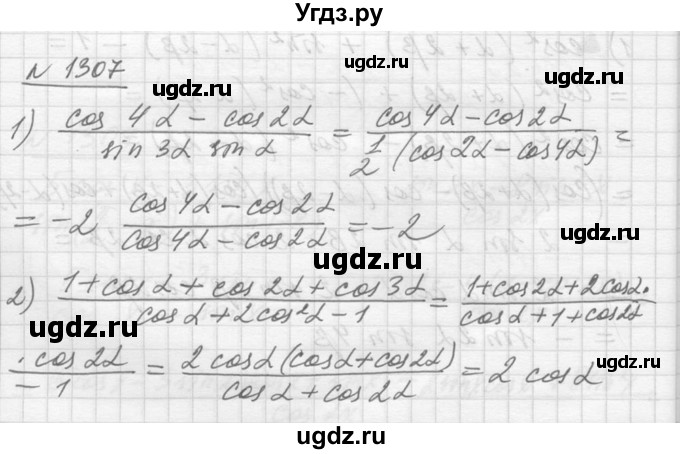 Угдз.ру
N 1307
ugdz.ru ugdz.ru
1) (cos 4α − cos 2α)/(sin 3α sin α) = (cos 4α − cos 2α)/(1/2 (cos 2α − cos 4α)) =
= −2 (cos 4α − cos 2α)/(cos 4α − cos 2α) = −2
ugdz.ru
2) (1 + cos α + cos 2α + cos 3α)/(cos α + 2 cos² α − 1) = (1 + cos 2α + 2 cos α ·)/(cos α + 1 + cos 2α
ugdz.ru ugdz.ru
· cos 2α)/(− 1) = (2 cos α (cos α + cos 2α))/(cos α + cos 2α) = 2 cos α
ugdz.ru
ugdz.ru